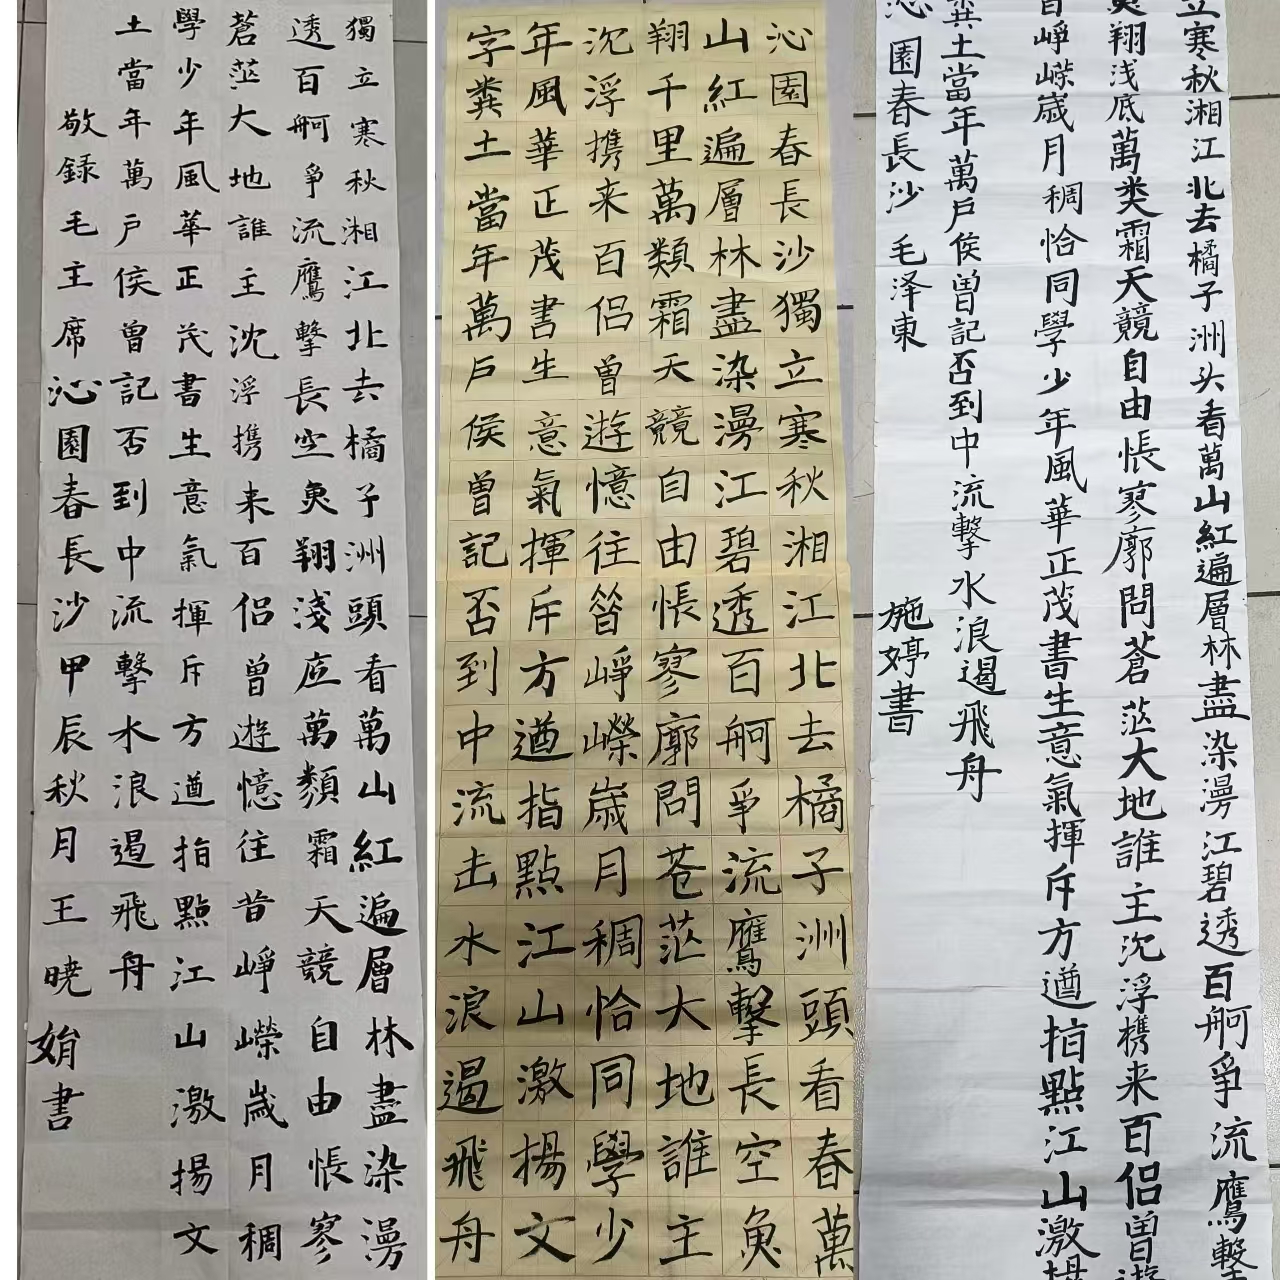 獨立寒秋湘江北去橘子洲頭看萬山紅遍層林盡染漫
透百舸爭流鷹擊長空魚翔淺底萬類霜天競自由悵寥
蒼茫大地誰主沈浮携来百侣曾遊憶往昔崢嶸歲月稠
學少年風華正茂書生意氣揮斥方遒指點江山激揚文
土當年萬戶侯曾記否到中流擊水浪遏飛舟
敬録毛主席沁園春長沙甲辰秋月王曉娟書
沁園春長沙獨立寒秋湘江北去橘子洲頭看春萬
山紅遍層林盡染漫江碧透百舸爭流鷹擊長空魚
翔千里萬類霜天競自由悵寥廓問苍茫大地誰主
沉浮携来百侣曾遊憶往昔崢嶸歲月稠恰同學少
年風華正茂書生意氣揮斥方遒指點江山激揚文
字糞土當年萬戶侯曾記否到中流击水浪遏飛舟
立寒秋湘江北去橘子洲头看萬山紅遍層林盡染漫江碧透百舸爭流鷹擊
魚翔浅底萬类霜天競自由悵寥廓問蒼茫大地誰主沉浮携来百侣曾遊
昔崢嶸歲月稠恰同學少年風華正茂書生意氣揮斥方遒指點江山激揚
糞土當年萬戶侯曾記否到中流擊水浪遏飛舟
沁園春長沙 毛泽東 施婷書